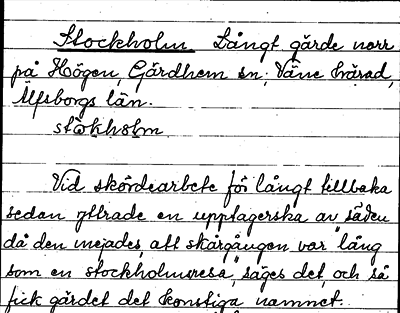 Stockholm Långt gärde norr
på Högen, Gärdhem sn, Väne härad,
Älfsborgs län.
stòkhòlm
Vid skördearbete för långt tillbaka
sedan yttrade en upptagerska av säden
då den mejades, att skårgången var "lång
som en stockholmsresa", säges det, och så
fick gärdet det konstiga namnet.